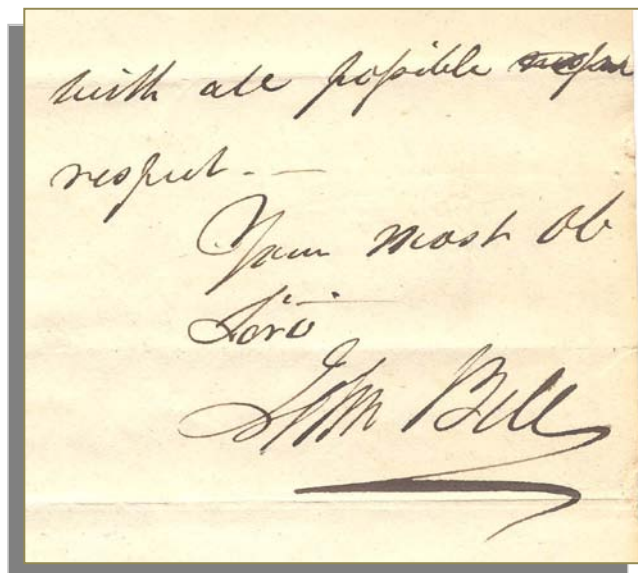 with all possible
respect. —
Your most Ob
Serv
John Bell